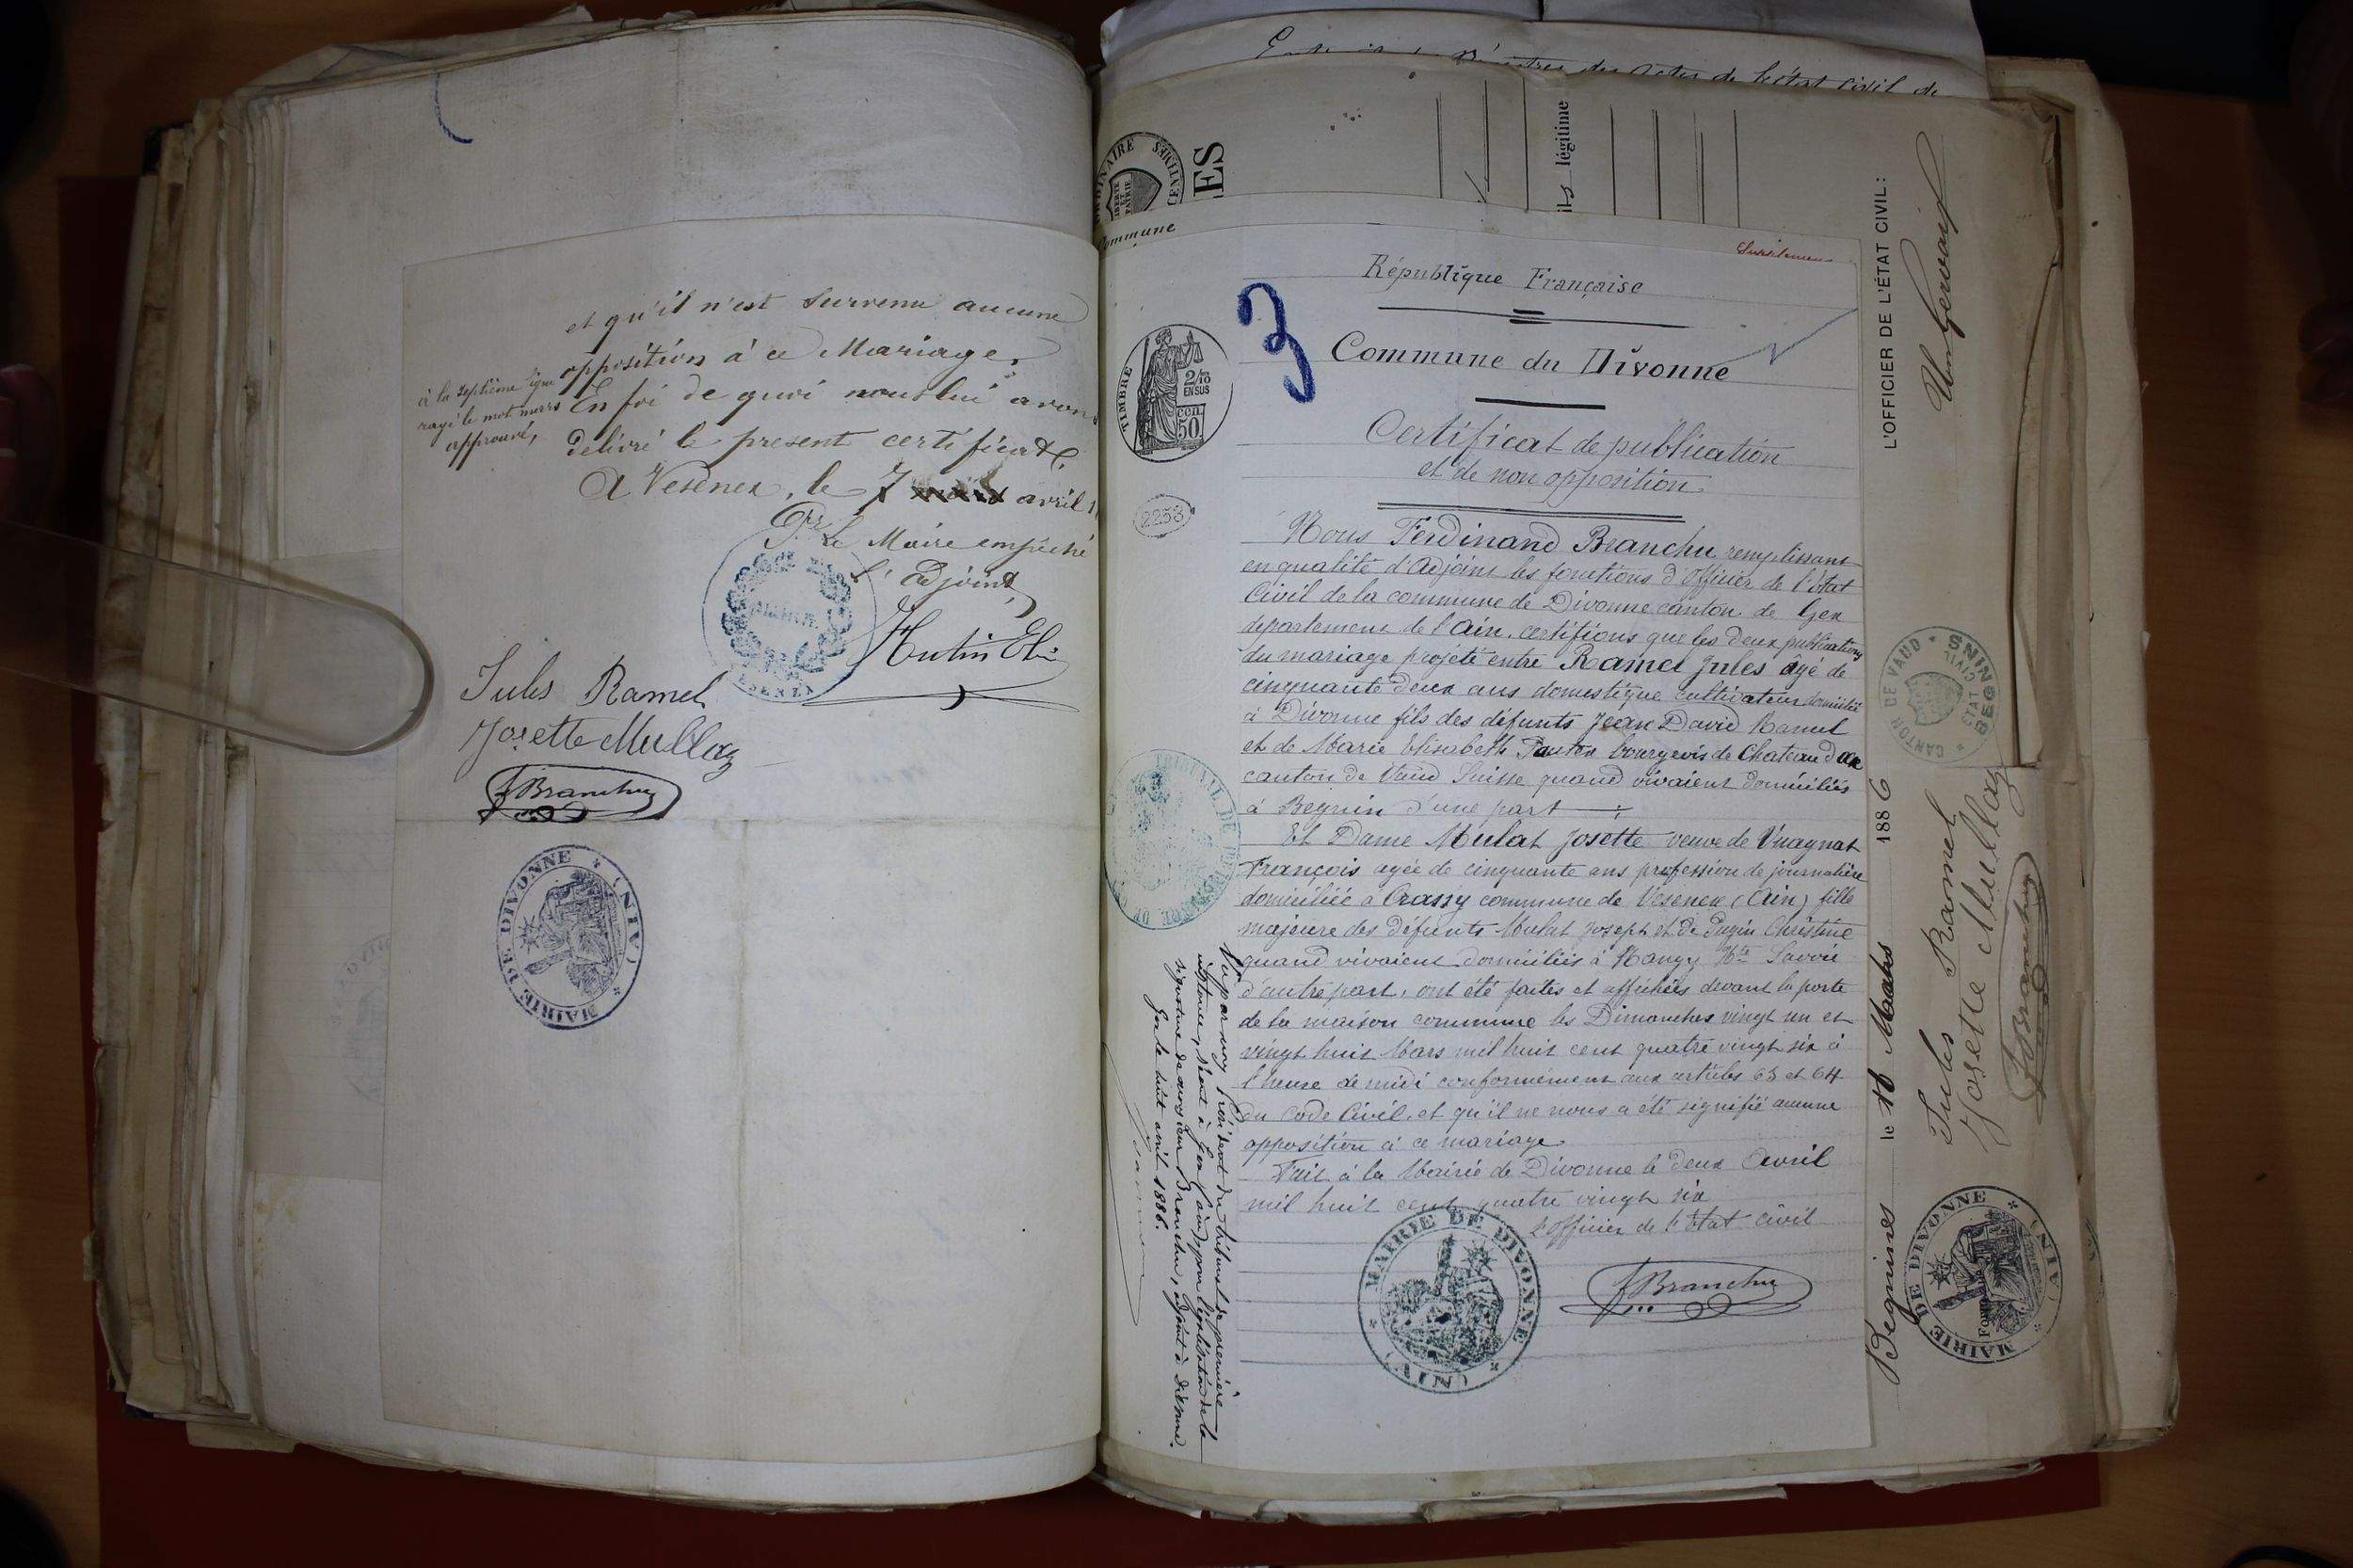 et qu'il n'est survenu aucune
opposition à ce Mariage.
En foi de quoi nous lui avons
délivré le présent certificat.
A Vesenex, le 7 avril
à la septième ligne
rayé le mot mars
approuvé,
Pr. Le Maire empêché
L'Adjoint,
Hutin
Jules Ramel
Josette Mullaz
fBranchu
MAIRIE DE DIVONNE * (AIN) *
des actes de l'état civil de
CENTIMES
LIBERTÉ
ET
PATRIE
ES
ils légitime
Commune
République Française
3
Commune du Divonne
TIMBRE
2/10
EN SUS
cen.
50
2253
Certificat de publication
et de non opposition
Nous Ferdinand Branchu remplissant
en qualité d'Adjoint les fonctions d'Officier de l'état
Civil de la commune de Divonne canton de Gex
departement de l'Ain, certifions que les deux publications
du mariage projeté entre Ramel Jules âgé de
cinquante deux ans domestique cultivateur domicilié
à Divonne fils des défunts Jean David Ramel
et de Marie Elisabeth bourgeois de Chateau d'œx
canton de Vaud Suisse quand vivaient domiciliés
à Begnin d'une part ;
Et Dame Mulat Josette veuve de Vuagnat
François agée de cinquante ans profession de journalière
domiciliée à Crassy commune de Vesenex (Ain) fille
majeure des défunts Mulat Joseph et de Christine
quand vivaient domiciliés à Nangy Hte Savoie
d'autre part, ont été faites et affichées devant la porte
de la maison commune les Dimanches vingt un et
vingt huit Mars mil huit cent quatre vingt six à
l'heure de midi conformément aux articles 63 et 64
du Code Civil, et qu'il ne nous a été signifié aucune
opposition à ce mariage
Fait à la Mairie de Divonne le deux Avril
mil huit cent quatre vingt six
L'officier de l'état civil
fBranchu
MAIRIE DE DIVONNE * (AIN) *
Vu par nous Président du tribunal de première
instance, séant à Gex (ain) pour légalisation de la
signature de monsieur Branchu, adjoint à Divonne.
Gex le huit avril 1886.
L'OFFICIER DE L'ÉTAT CIVIL:
CANTON DE VAUD * ETAT CIVIL BEGNINS *
Begnines le 18 Mars 1886
Jules Ramel
Josette Mullaz
fBranchu
MAIRIE DE DIVONNE * (AIN) *